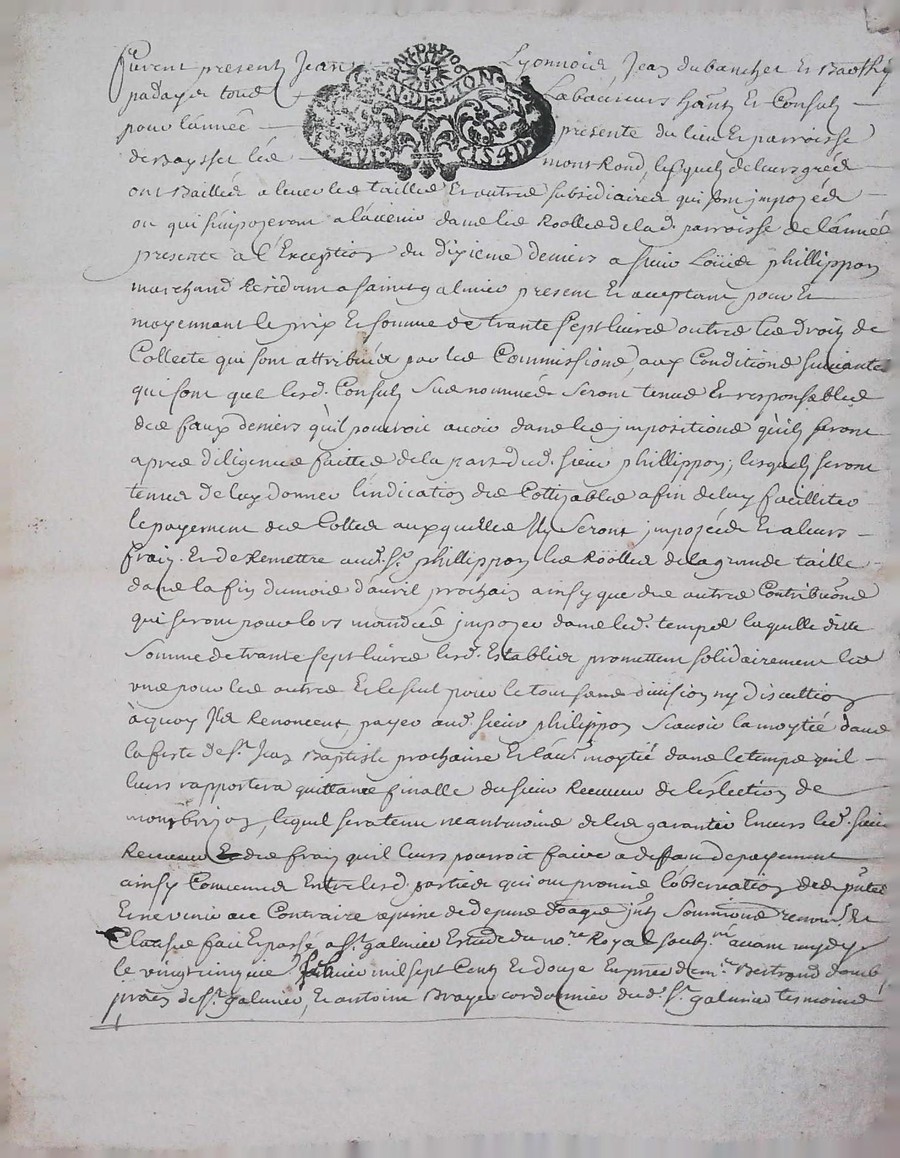 furent presents Jean Lyonnoir, Jean dubanchet Et Barthy
padayer tous Laboureurs hãnts Et Consuls
pour l'année presente du lieu Et parroisse
de Boysset les montRond, lesquels de leurs grées
ont Baillée a lever les tailles Et outres subsidiaires qui sont jmposées
ou qui s'imposeront a l'avenir dans les Roolles de lad. parroisse de l'année
presente a l'Exception du dixieme deniers a sieur Loüis phillippon
marchand Residant a saint galmier present Et acceptant pour Et
moyennant le prix Et somme de trante sept livres outres les droits de
Collecte qui sont attribués par les Commissions, aux Conditions suivantes
qui sont que lesd. Consuls sus nommées seront tenus Et responsables
des faux deniers qu'il pourroit avoir dans les jmpositions qu'ils seront
apres diligences faittes de la part dud. sieur phillippon, lesquels seront
tenus de luy donner l'indication des Cottizables afin de luy facilliter
le payement des Cottes auxquelles Ils seront jmposées Et a leurs
frais. Et de Remettre aud. sr. phillippon les Roolles de la grande taille
dans la fin du mois d'avril prochain ainsy que des autres Contributions
qui seront pour lors mandées jmposer dans led. temps laquelle ditte
somme de trante sept livres lesd. Establies promettent solidairement les
uns pour les autres Et le seul pour le tout sans division ny discution
à quoy Ils Renoncent, payer aud. sieur philippon scavoir la moytié dans
la feste de st. Jean Baptiste prochaine Et l'aue. moytié dans le temps qu'il
leurs rapportera quittance finalle du sieur Receveur de l'election de
montbrizon, lequel sera tenu neantmoins de les garantir Envers led. sieur
Receveur Et des frais qu'il leurs pourroit faire a deffaut de payement
ainsy Convenus Entre lesd. parties qui ont promis l'observation des pñtes
Et ne venir au Contraire a peine de depens soumissions renons. Et
Clauses fait Et passé a st. galmier Estude du nore. Royal soubsné. avant midy
le vingt cinquie. mil sept Cents Et douze En pñce de me. Bertrand
de st. galmier, Et antoine Brayer cordonnier dud. st. galmier tesmoins